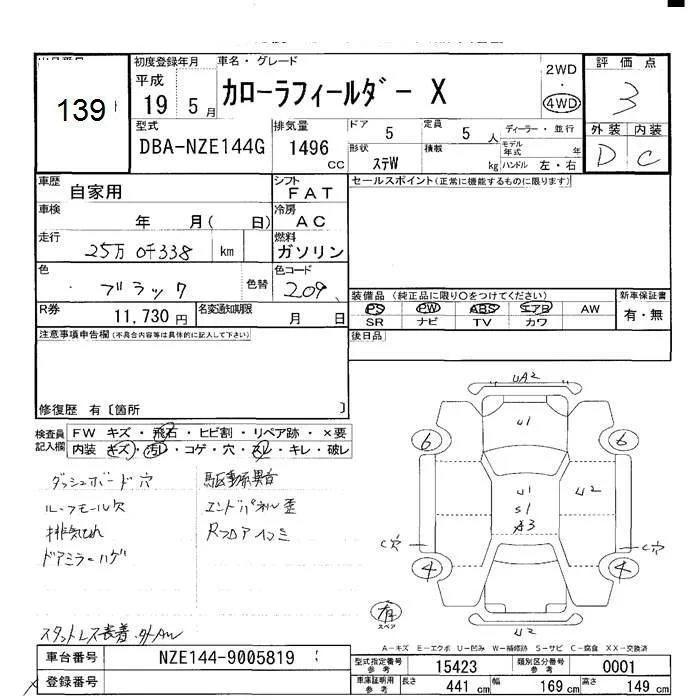 139
初度登録年月
平成
19 5月
車名・グレード
カローラフィールダー X
2WD
・
4WD
評価点
3
外装 内装
D C
型式
DBA-NZE144G
排気量
1496
CC
ドア 5
定員 5 人
形状 ステW
積載 kg
ディーラー・並行
モデル年式 年
ハンドル 左・右
車歴 自家用
シフト FAT
車検 年 月( 日)
冷房 AC
走行 25万 0千338 km
燃料 ガソリン
色 ブラック
色替
色コード 209
R券 11,730 円
名変通知期限 月 日
セールスポイント(正常に機能するものに限ります)
装備品 (純正品に限り○をつけてください)
PS PW ABS エアB AW
SR ナビ TV カワ
新車保証書
有・無
後日品
注意事項申告欄(不具合内容等は具体的に記入して下さい)
修復歴 有〔箇所 〕
検査員記入欄
FW キズ・飛石・ヒビ割・リペア跡・×要
内装 キズ・汚レ・コゲ・穴・スレ・キレ・破レ
ダッシュボード穴
ルーフモール欠
排気もれ
ドアミラーハゲ
駆動系異音
エンドパネル歪
Rフロアコミ
スタットレス装着・外AW
UA2
U1
6
6
U1
S1
A3
U2
C穴
C穴
4
4
有
スペア
U2
A−キズ E−エクボ U−凹み W−補修跡 S−サビ C−腐食 XX−交換済
車台番号 NZE144-9005819
登録番号
型式指定番号 参考 15423
類別区分番号 参考 0001
車庫証明用 参考 長さ 441 cm 幅 169 cm 高さ 149 cm